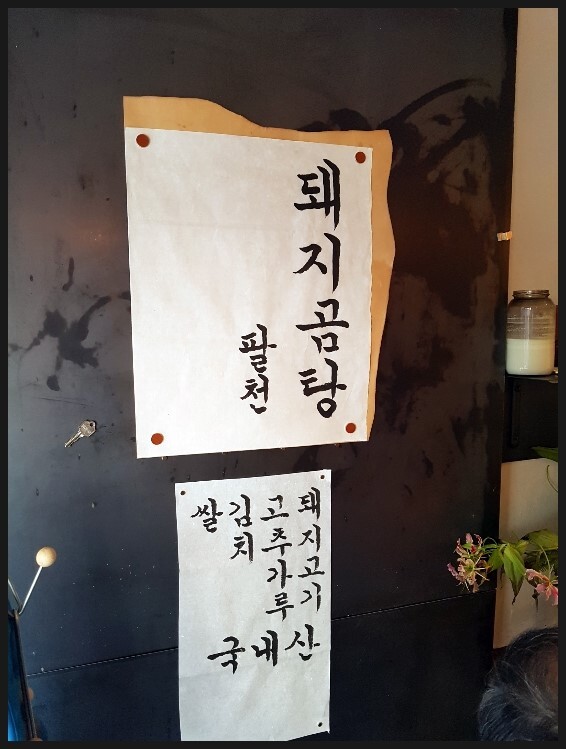 돼지곰탕
팔천
돼지고기
고추가루
김치
쌀
국내산